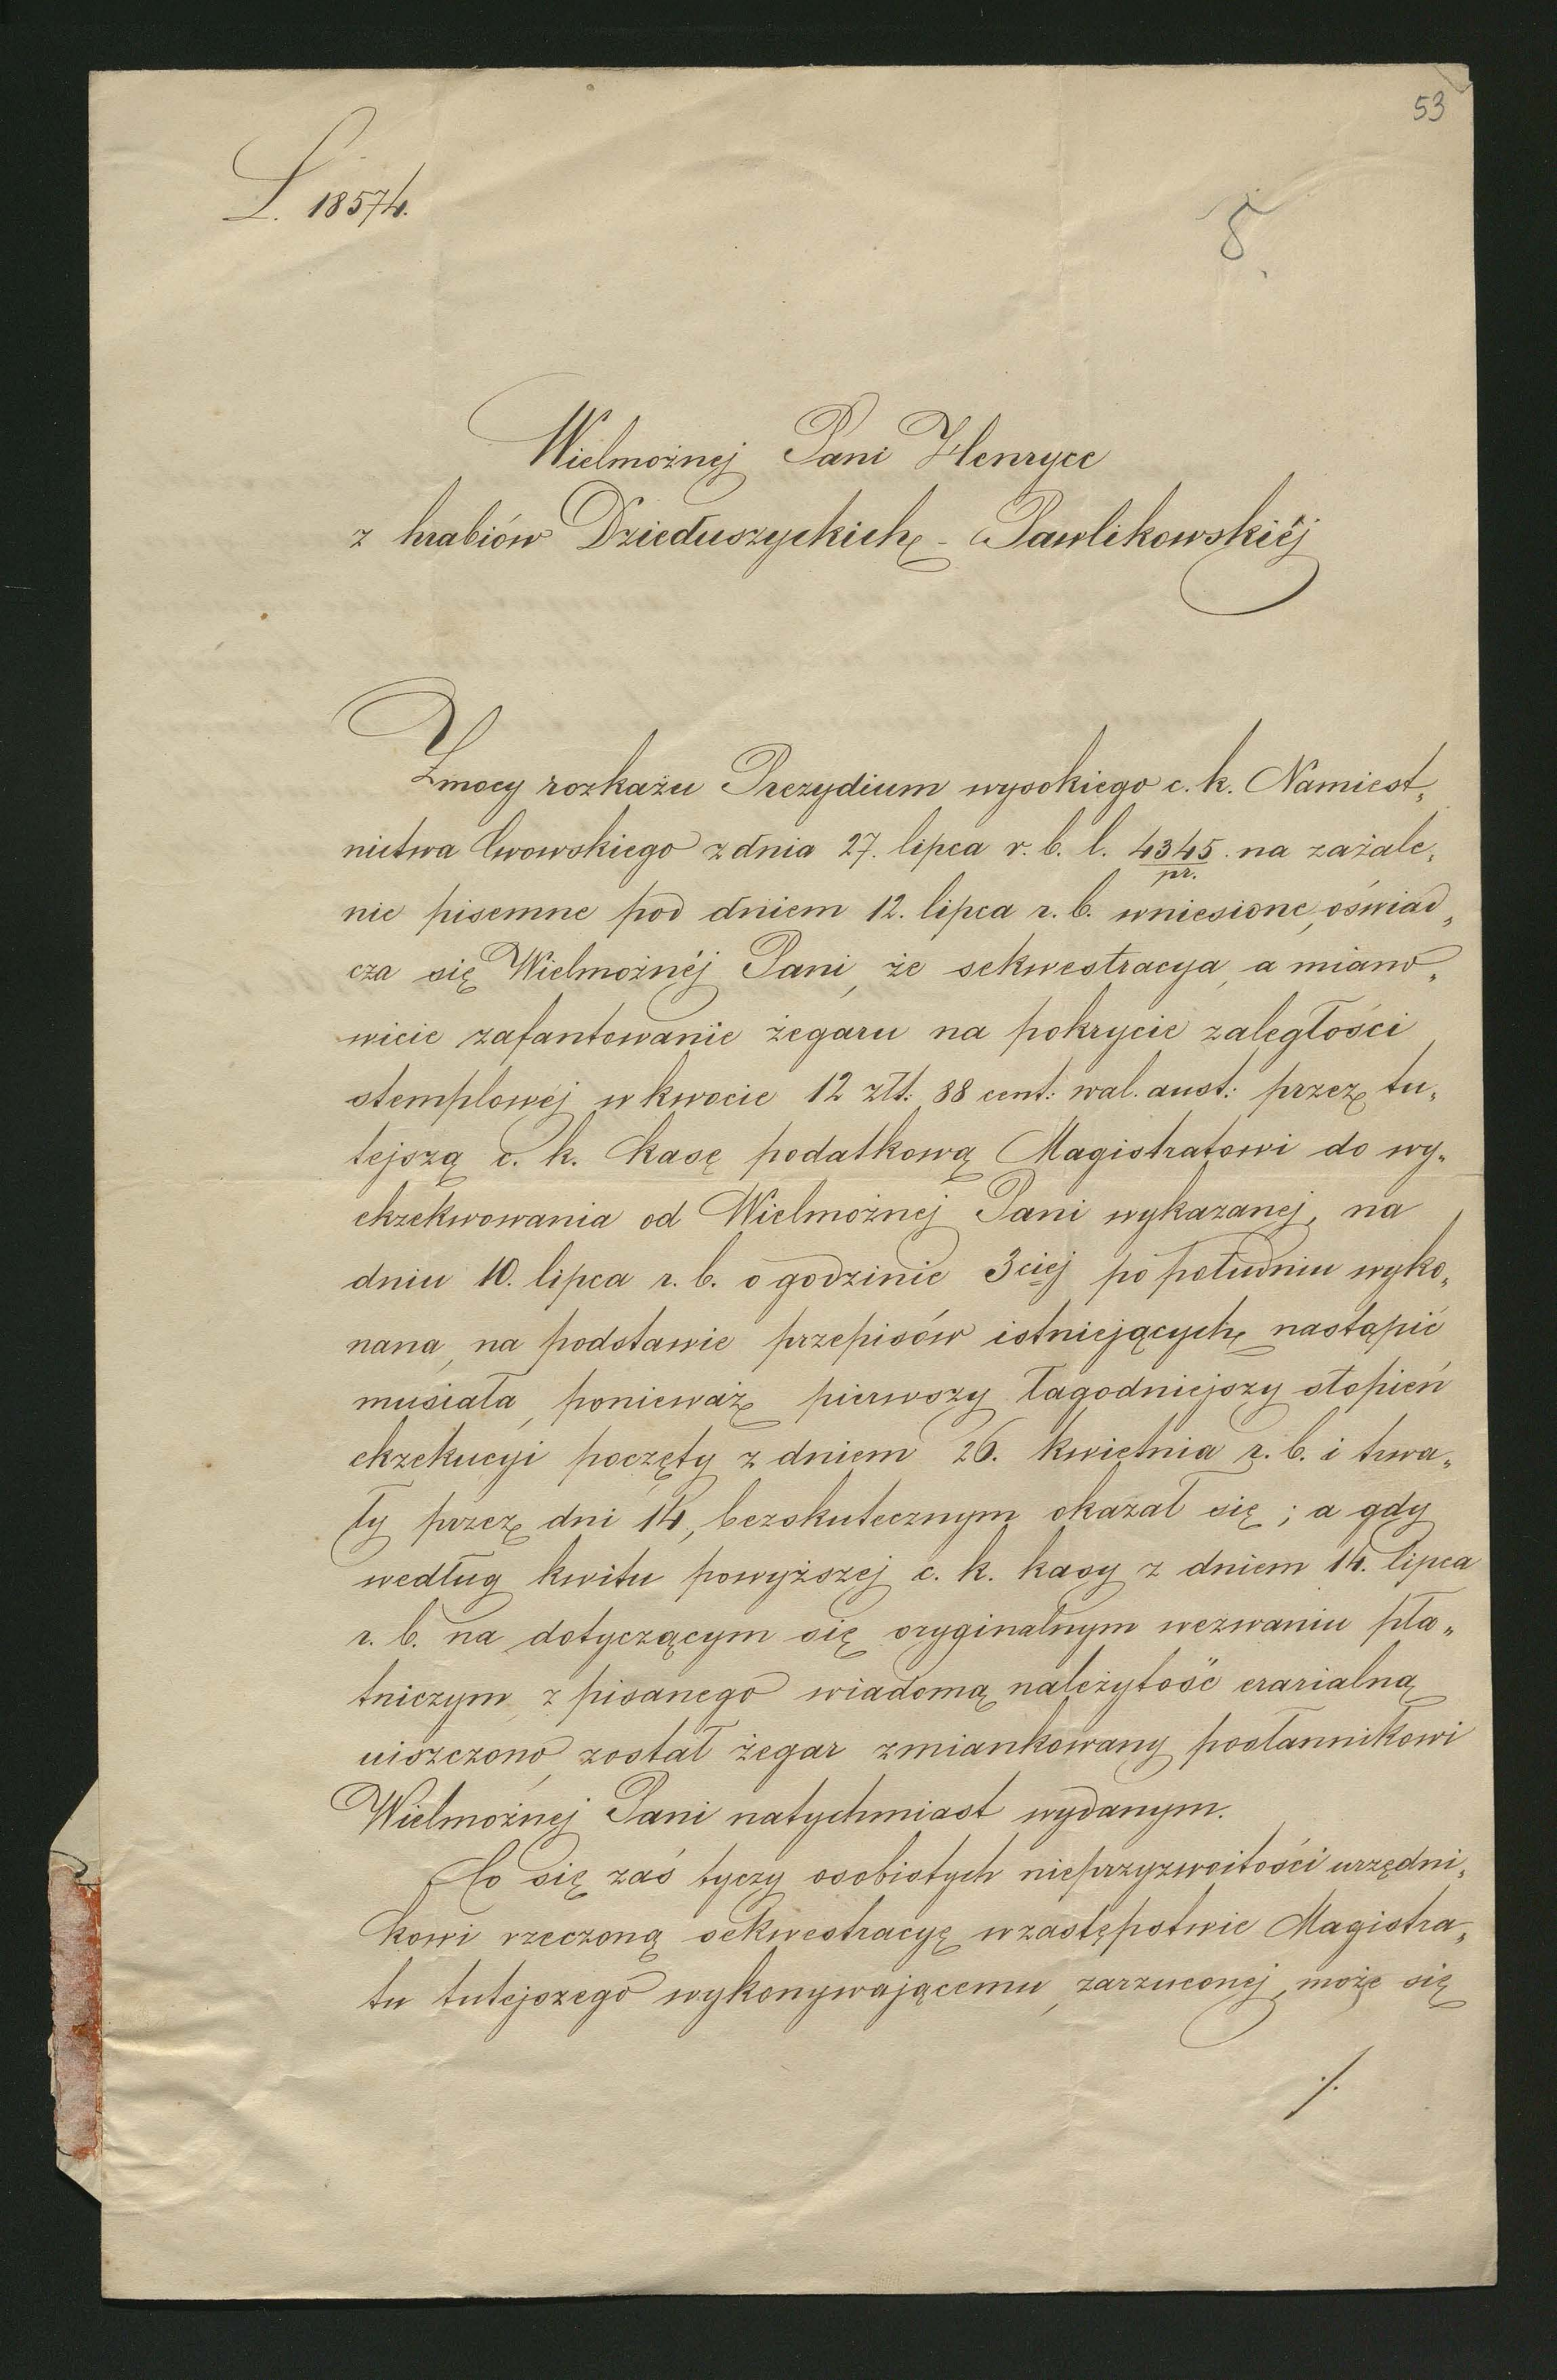 53
L. 18574.
8
Wielmożnej Pani Henryce
z hrabiów Dzieduszyckich - Pawlikowskiéj
Z mocy rozkazu Prezydium wysokiego c. k. Namiest„
nictwa Lwowskiego z dnia 27. lipca r. b. l. 4345 na zażale„
pr.
nie pisemne pod dniem 12. lipca r. b. wniesione, oświad„
cza się Wielmożnéj Pani, że sekwestracya, a miano„
wicie zafantowanie żegaru na pokrycie zaległości
stemplowéj w kwocie 12 złt: 88 cent: wal. aust: przez tu„
tejszą c. k. kasę podatkową Magistratowi do wy„
ekzekwowania od Wielmożnej Pani wykazanej, na
dniu 10. lipca r. b. o godzinie 3ciej po południu wyko„
nana, na podstawie przepisów istniejących nastąpić
musiała, ponieważ pierwszy łagodniejszy stopień
ekzekucyi poczęty z dniem 26. kwietnia r. b. i trwa„
ły przez dni 14, bezskutecznym okazał się; a gdy
według kwitu powyższej c. k. kasy z dniem 14. lipca
r. b. na dotyczącym się oryginalnym wezwaniu pła„
tniczym, z pisanego wiadomą należytość erarialną
uiszczono, został żegar zmiankowany posłannikowi
Wielmożnej Pani natychmiast wydanym.
Co się zaś tyczy osobistych nieprzyzwoitości urzędni„
kowi rzeczoną sekwestracyę w zastępstwie Magistra„
tu tutejszego wykonywającemu, zarzuconej, może się
./.